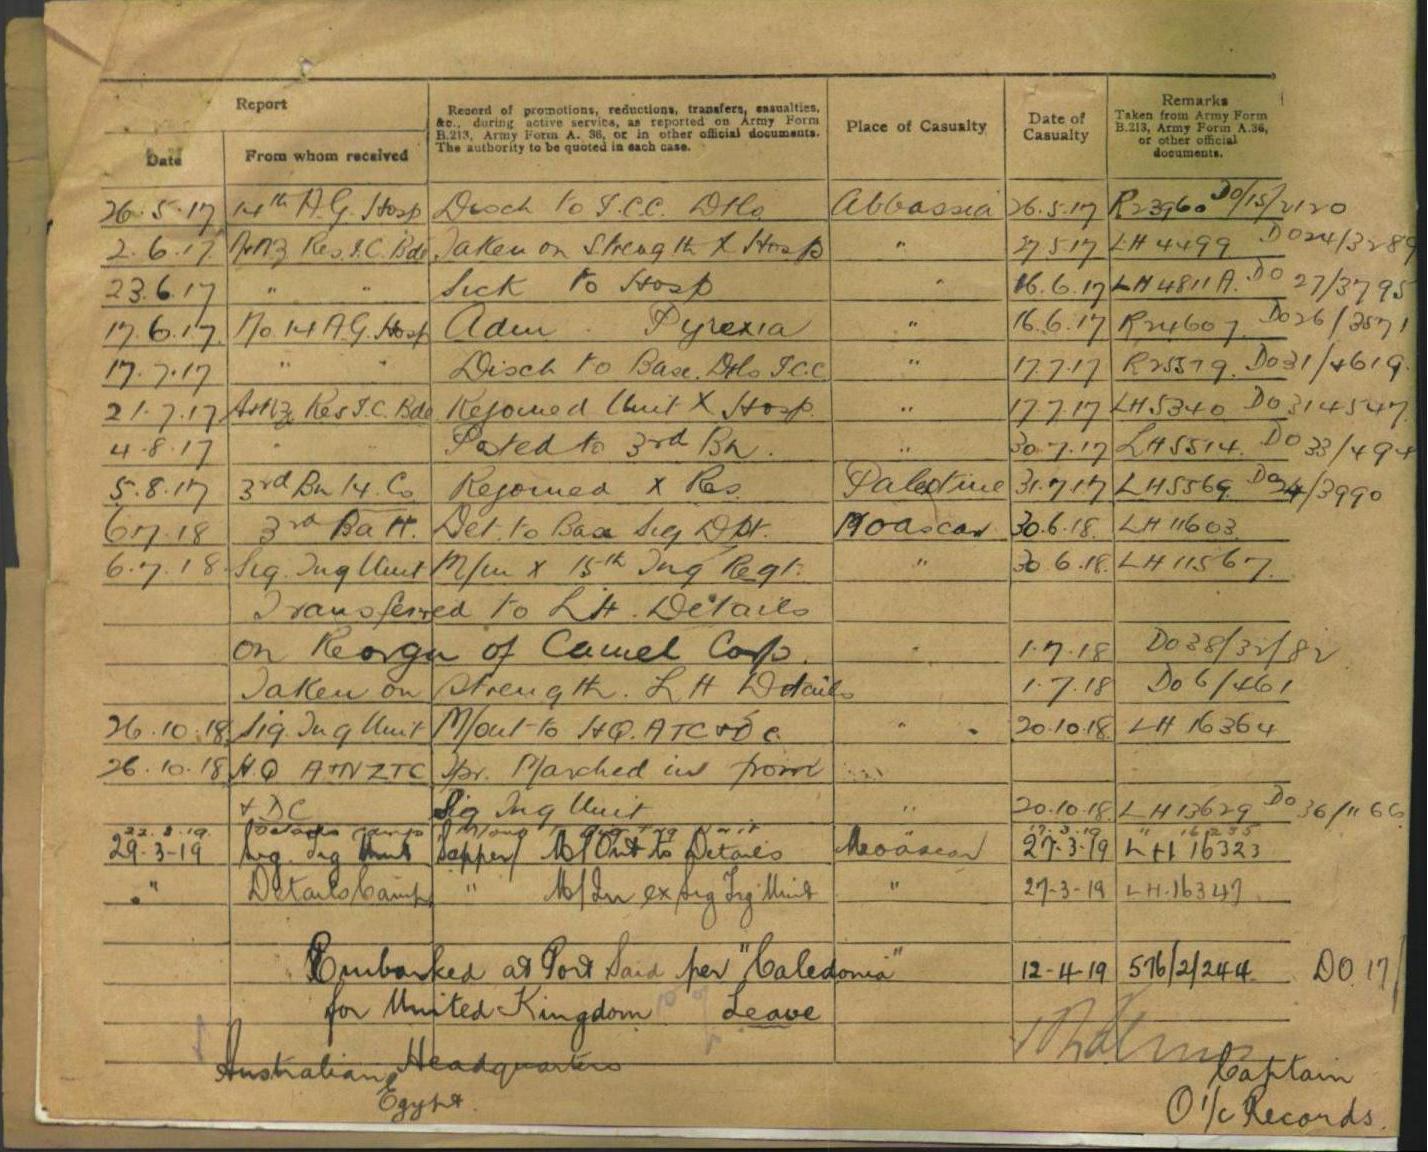 Report
Record of promotions, reductions, transfers, casualties, &c., during active service, as reported on Army Form B.213, Army Form A. 36, or in other official documents. The authority to be quoted in each case.
Place of Casualty
Date of Casualty
Remarks
Taken from Army Form B.213, Army Form A.36, or other official documents.
Date From whom received
26.5.17 14th A.G. Hosp Disch to I.C.C. Dtls Abbassia 26.5.17 R23960 Do/15/2120
2.6.17 Res I.C. Bde Taken on Strength X Hosp " 27.5.17 LH 4499 Do24/3289
23.6.17 " " Sick to Hosp " 16.6.17 LH 4811A. Do 27/3795
17.6.17 No 14 A.G. Hosp Adm Pyrexia " 16.6.17 R24607 Do26/3571
17.7.17 " " Disch to Base Dtls I.C.C " 17.7.17 R25579. Do31/4619.
21.7.17 Res I.C. Bde Rejoined Unit X Hosp. " 17.7.17 LH5340 Do314547
4.8.17 " " Posted to 3rd Bn. " 30.7.17 LH5514. Do 33/494
5.8.17 3rd Bn 14. Co Rejoined X Res Palestine 31.7.17 LH5569 Do34/3990
6.7.18 3rd Batt. Det. to Base Sig Dpt. Moascar 30.6.18. LH 11603.
6.7.18 Sig. Tng Unit M/in X 15th Tng Regt. " 30.6.18. LH 11567.
Transferred to LH. Details
on Reorgn of Camel Corp. " 1.7.18 Do38/32/82
Taken on Strength. LH Details 1.7.18 Do6/461
26.10.18 Sig. Tng Unit M/out to HQ. ATC & DC. " 20.10.18. LH 16364
26.10.18 H.Q A+NZTC Spr. Marched in from
+ DC Sig Tng Unit " 20.10.18. LH13629 Do 36/1166
29-3-19 Sig. Trg Unit Sapper M/Out to Details Moascar 27-3-19 LH 16323
" Details Camp " M/In ex Sig Trg Unit " 27-3-19 LH.16347
Embarked at Port Said per "Caledonia" 12-4-19 576/2/244. DO.17/
for United Kingdom Leave
Australian Headquarters
Egypt.
Captain
O i/c Records.